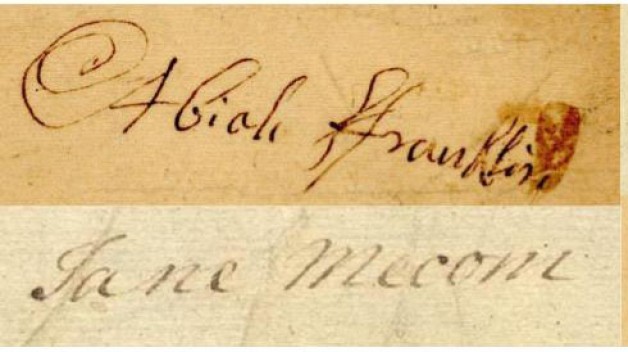 Abiah ffranklin
Jane Mecom